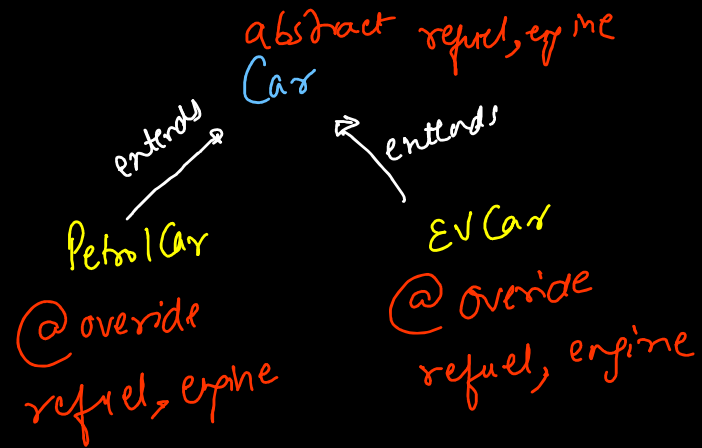 abstract refuel, engine
Car
extends
extends
PetrolCar
EVCar
@overide
refuel, engine
@overide
refuel, engine